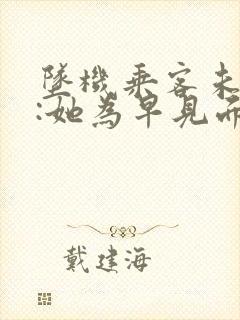 墜機乘客未
:她為早見
戴建海